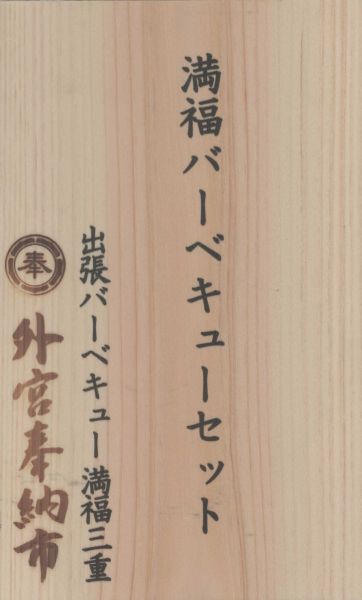 満福バーベキューセット
出張バーベキュー満福三重
奉
外宮奉納市